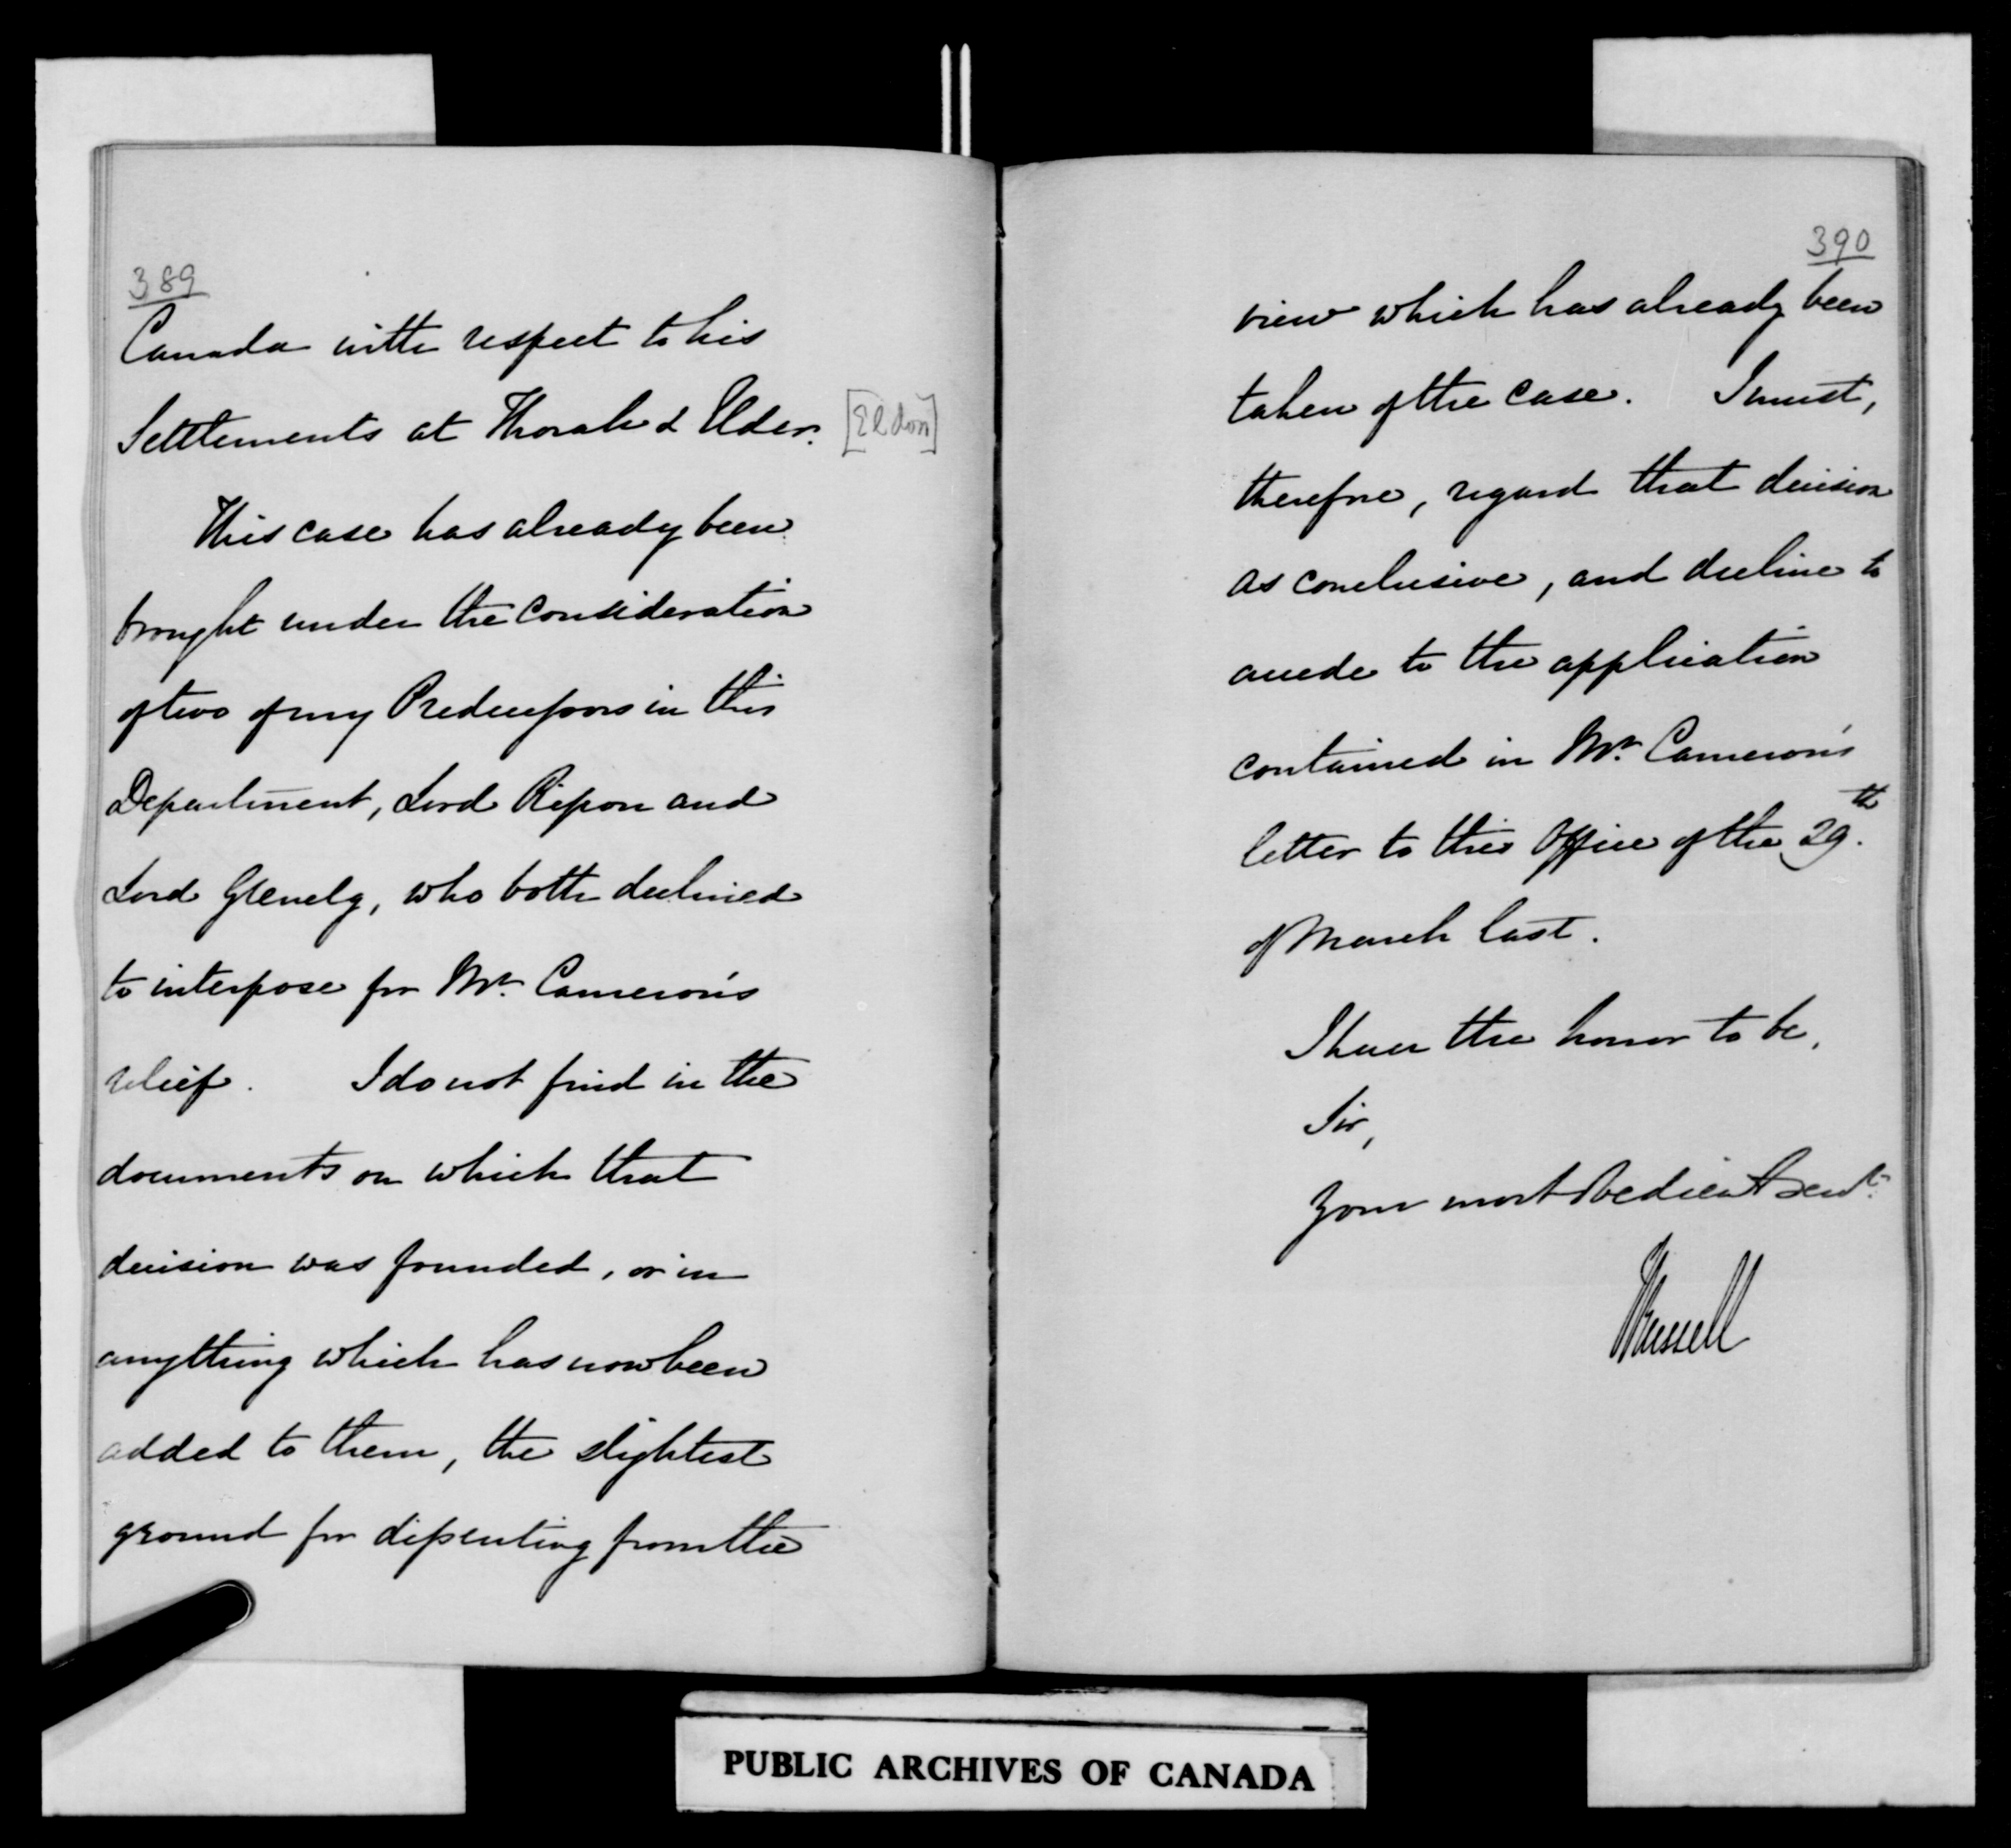 389
Canada with respect to his
Settlements at Thorah & Elder. [Eldon]
This case has already been
brought under the consideration
of two of my Predecessors in this
Department, Lord Ripon and
Lord Glenelg, who both declined
to interpose for Mr. Cameron's
relief. I do not find in the
documents on which that
decision was founded, or in
anything which has now been
added to them, the slightest
ground for dissenting from the
390
view which has already been
taken of the case. I must,
therefore, regard that decision
as conclusive, and decline to
accede to the application
contained in Mr. Cameron's
letter to this Office of the 29th.
of March last.
I have the honor to be,
Sir,
Your most obedient servt.
JRussell
PUBLIC ARCHIVES OF CANADA